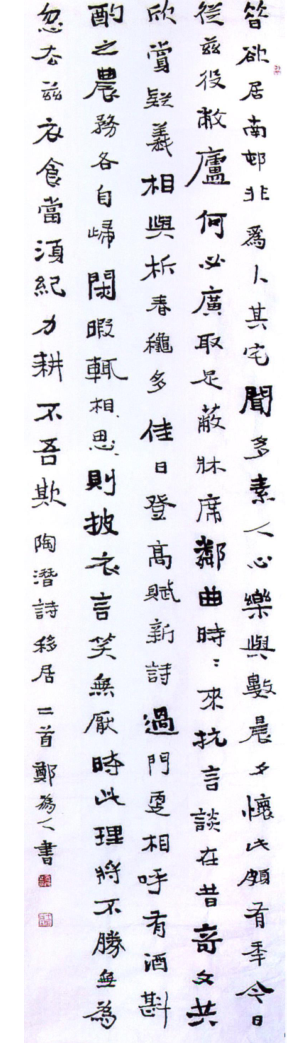 昔欲居南邨非為卜其宅聞多素人心樂與數晨夕懷此頗有秊今日
從茲役敝廬何必廣取足蔽牀席鄰曲時〻來抗言談在昔奇文共
欣賞疑義相與析春穐多佳日登高賦新詩過門更相呼有酒斟
酌之農務各自歸閑暇輒相思〻則披衣言笑無厭時此理將不勝無為
忽去茲衣食當須紀力耕不吾欺 陶潛詩移居二首鄭為人書